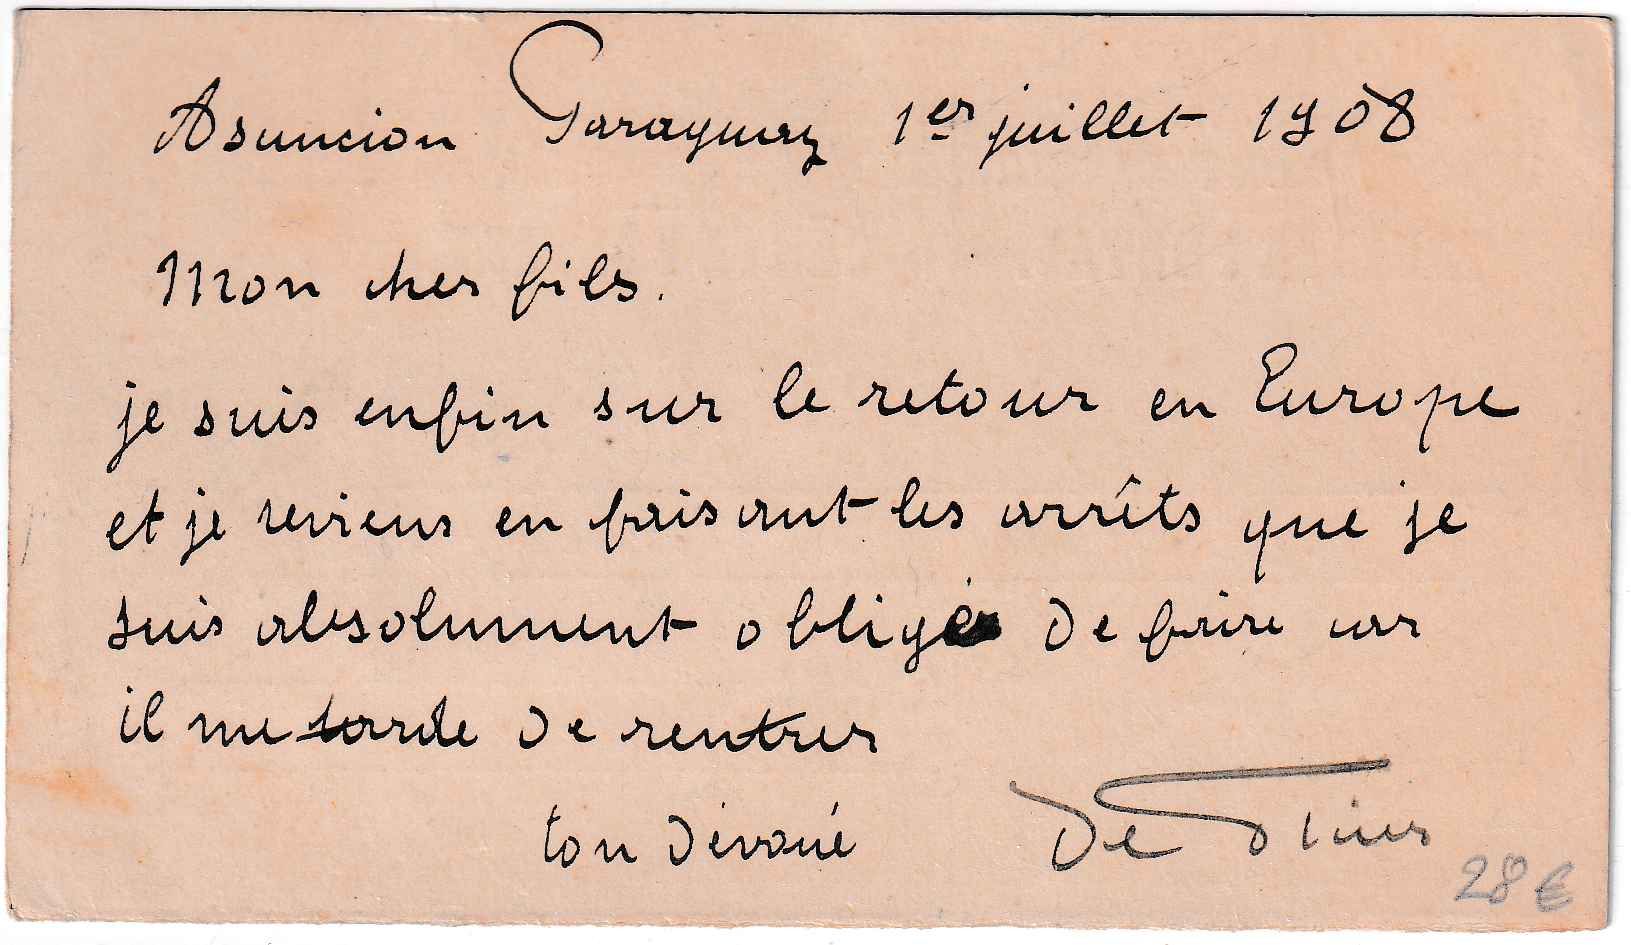 Asuncion Paraguay 1er juillet 1908
Mon cher fils.
je suis enfin sur le retour en Europe
et je reviens en faisant les arrêts que je
suis absolument obligé de faire car
il me tarde de rentrer
ton dévoué De
28 €